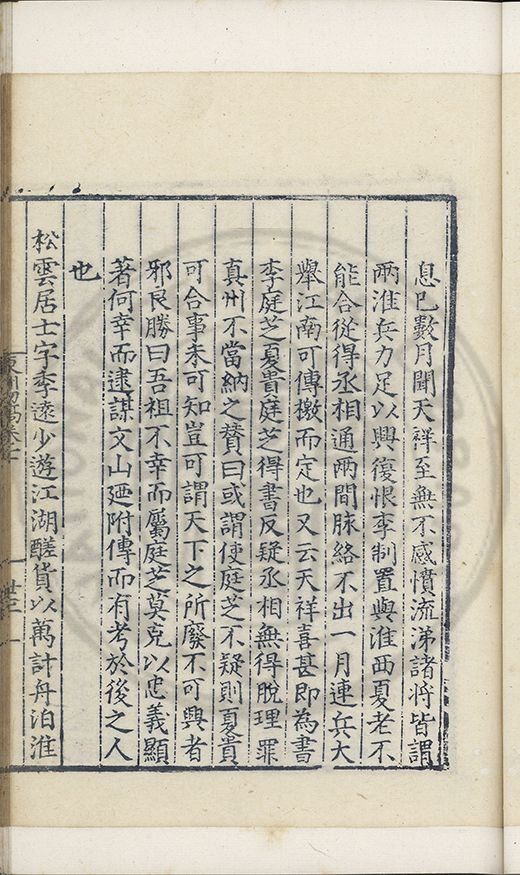 息已數月聞天祥至無不感憤流涕諸将皆謂
兩淮兵力足以興復恨李制置與淮西夏老不
能合從得丞相通兩間脉絡不出一月連兵大
舉江南可傳檄而定也又云天祥喜甚即為書
李庭芝夏貴庭芝得書反疑丞相無得脫理罪
真州不當納之賛曰或謂使庭芝不疑則夏貴
可合事未可知豈可謂天下之所廢不可興者
邪良勝曰吾祖不幸而屬庭芝莫克以忠義顯
著何幸而逮謀文山廼附傳而有考於後之人
也
松雲居士字季逵少遊江湖醝貨以萬計舟泊淮